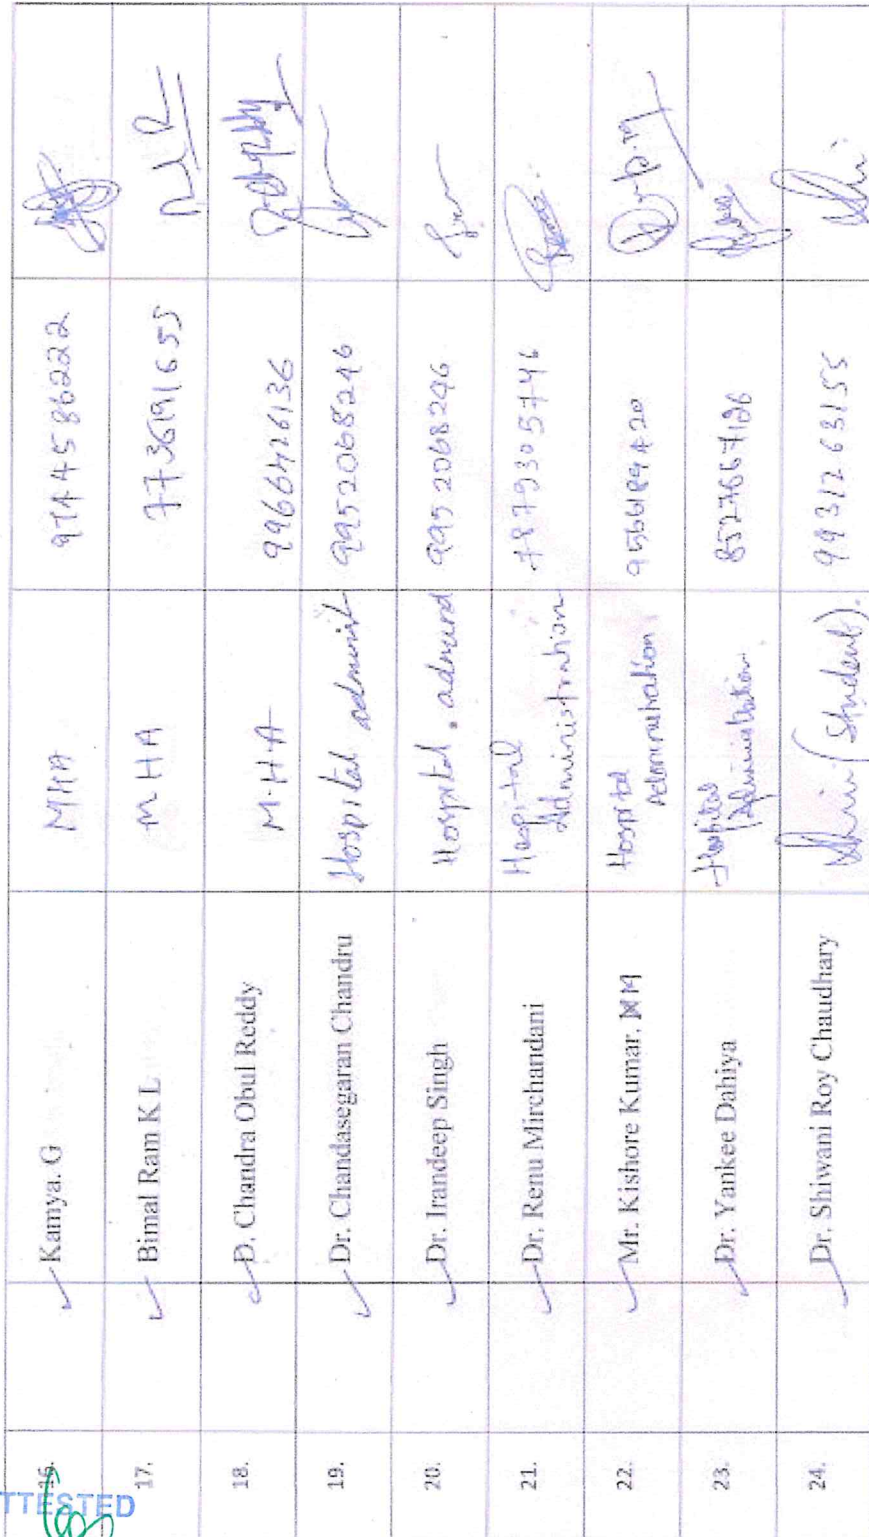 ATTESTED
16. Kamya. G MHA
17. Bimal Ram K L MHA 7736191655
18. D. Chandra Obul Reddy M.H.A 9966426136
19. Dr. Chandasegaran Chandru Hospital administ 9952068246
20. Dr. Irandeep Singh Hospital. 9952068246
21. Dr. Renu Mirchandani Hospital
Administration 7879305746
22. Mr. Kishore Kumar. Hospital
Administration
23. Dr. Yankee Dahiya Hospital
Administration
24. Dr. Shiwani Roy Chaudhary (Student). 9931263155